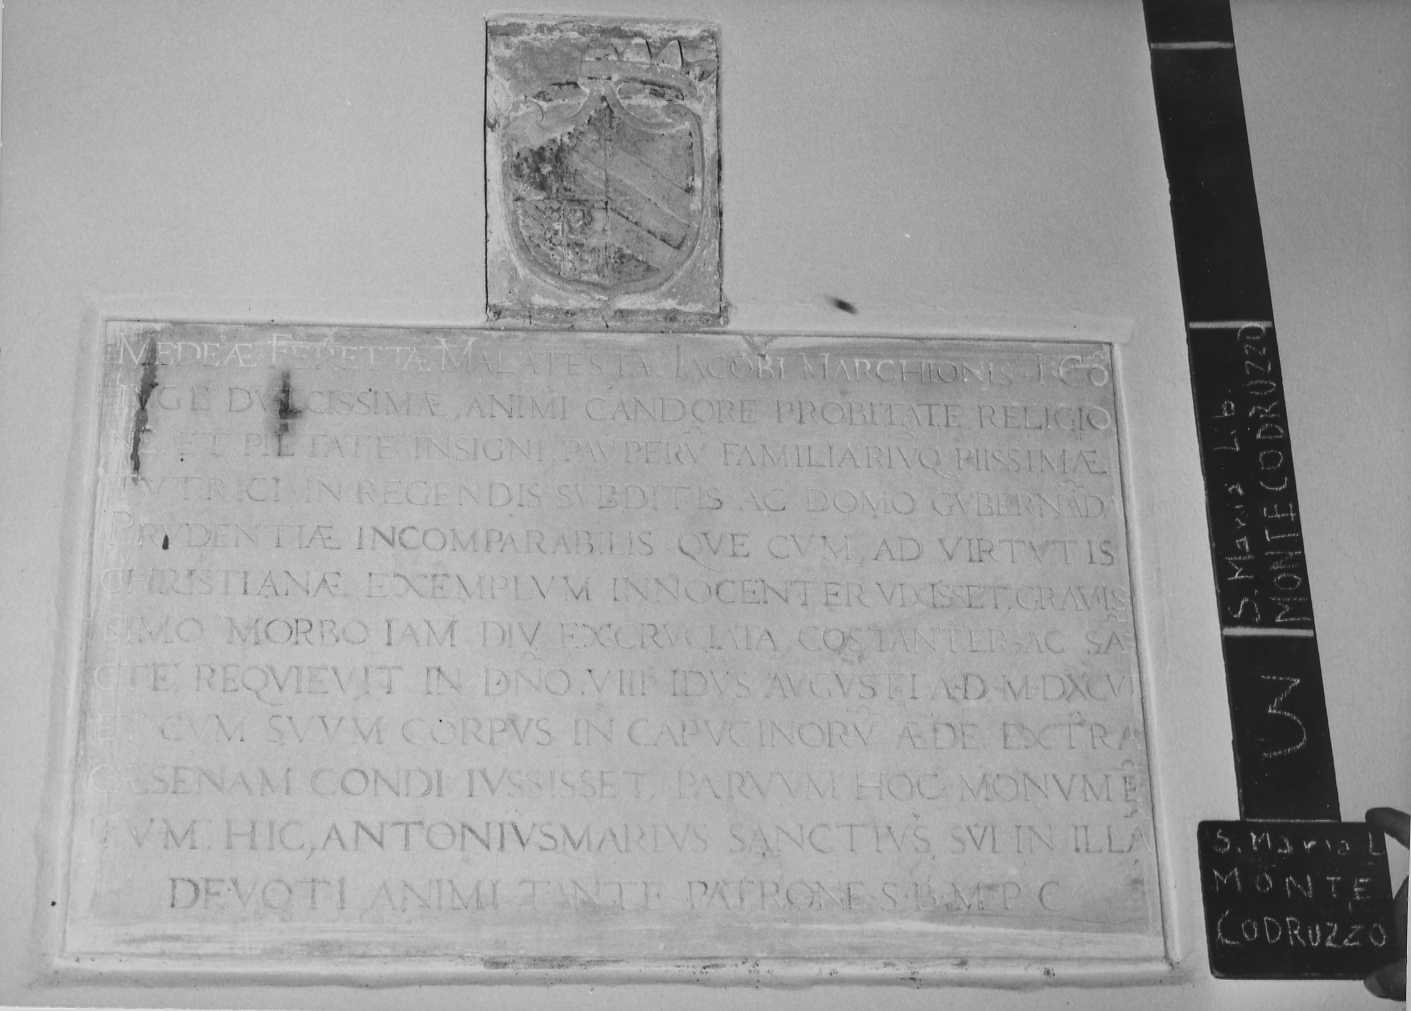 MEDEÆ FERETTÆ MALATESTA IACOBI MARCHIONIS I CO
IVGI DVLCISSIMÆ, ANIMI CANDORE PROBITATE RELIGIO
NE ET PIETATE INSIGNI, PAVPERV̄ FAMILIARIVQ PIISSIMÆ
TVTRICI IN REGENDIS SVBDITIS AC DOMO GVBERNĀDA
PRVDENTIÆ INCOMPARABILIS QVE CVM, AD VIRTVTIS
CHRISTIANÆ EXEMPLVM INNOCENTER VIXISSET, GRAVIS
SIMO MORBO IAM DIV EXCRVCIATA COSTANTER AC SA
CTE REQVIEVIT IN DNO VIII IDVS AVGVSTI A·D·M·DXCVI
ET CVM SVVM CORPVS IN CAPVCINORV̄ ÆDE EXTRA
CÆSENAM CONDI IVSSISSET, PARVVM HOC MONVMĒ
TVM HIC, ANTONIVSMARIVS SANCTIVS SVI IN ILLA
DEVOTI ANIMI TANTE PATRONE·S·B·M·P·C
S. Maria Lib.
MONTECODRUZZO
S. Maria L
MONTE
CODRUZZO